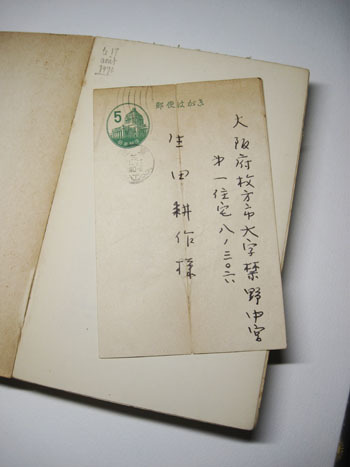 郵便はがき
5
大阪府枚方市大字禁野中宮
第一住宅八ノ三〇六
生田耕作様